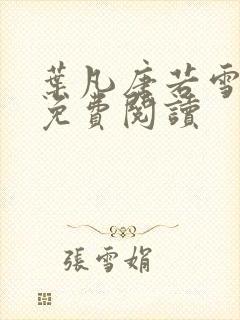 葉凡唐若雪
免費閱讀
張雪娟